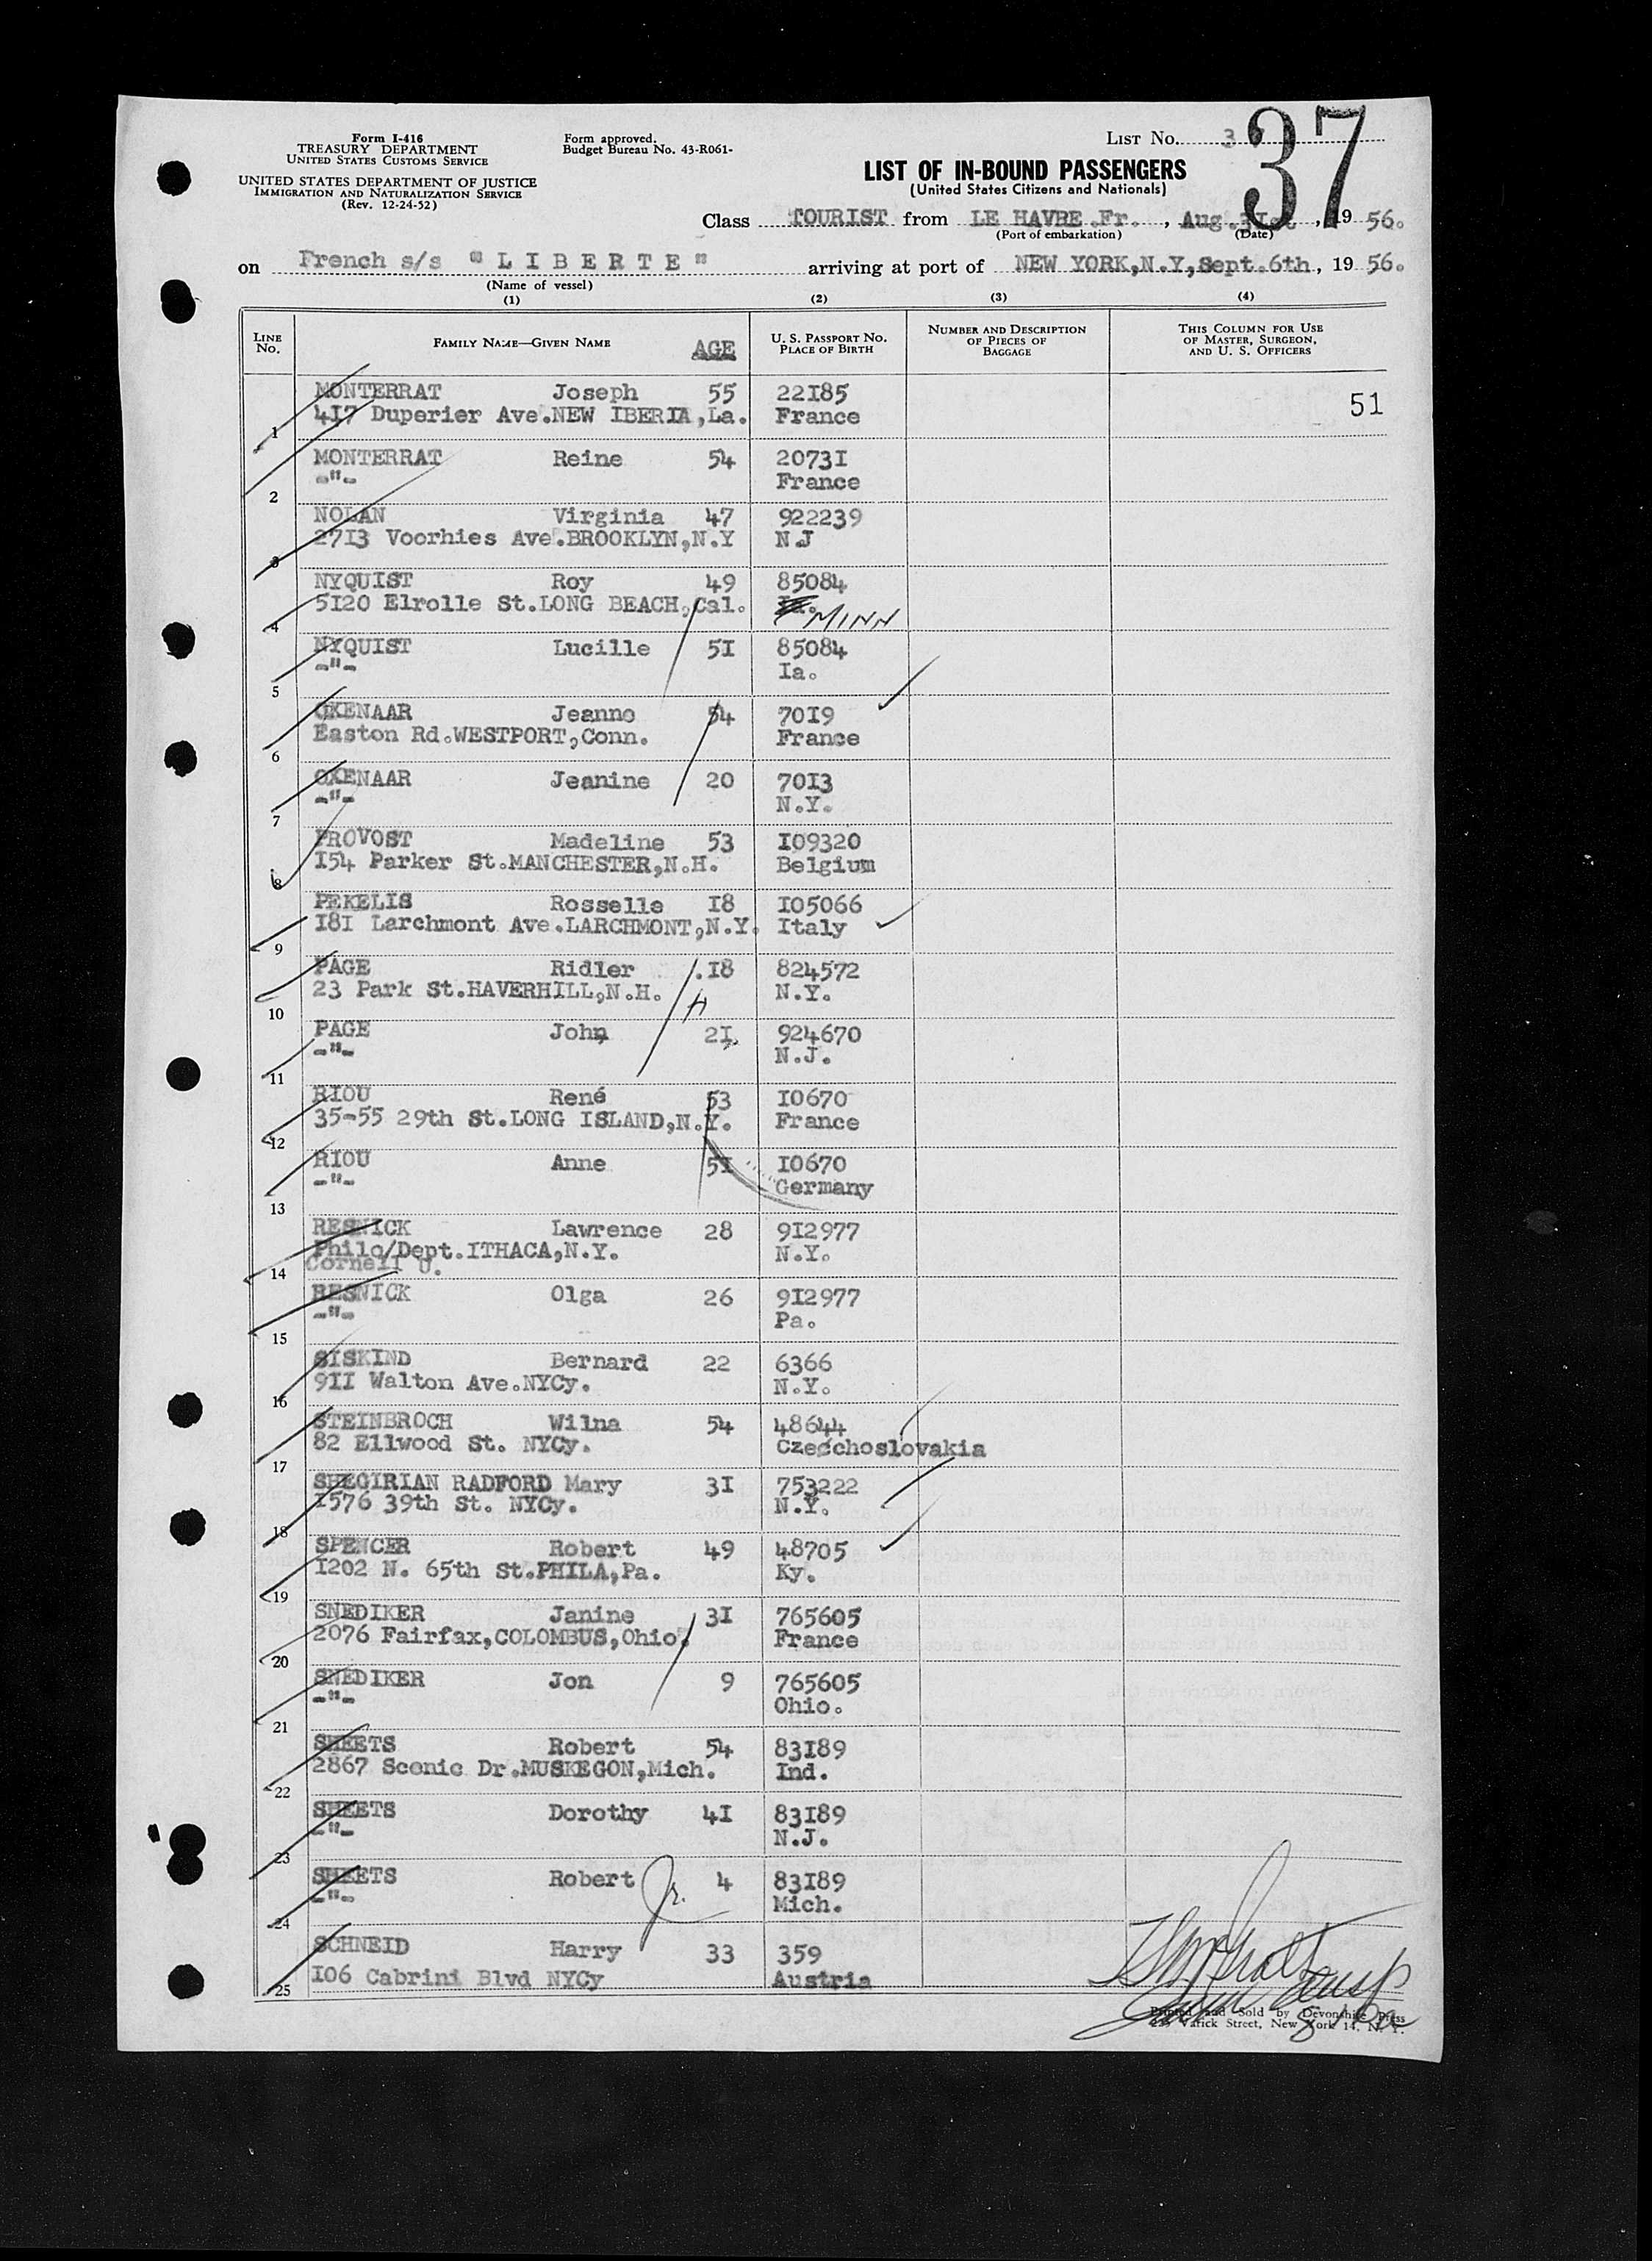 Form I-416
TREASURY DEPARTMENT
UNITED STATES CUSTOMS SERVICE
UNITED STATES DEPARTMENT OF JUSTICE
IMMIGRATION AND NATURALIZATION SERVICE
(Rev. 12-24-52)
Form approved.
Budget Bureau No. 43-R061-
LIST No. 3
37
LIST OF IN-BOUND PASSENGERS
(United States Citizens and Nationals)
Class TOURIST from LE HAVRE.Fr., Aug.3Ist, 19 56.
(Port of embarkation) (Date)
on French s/s "L I B E R T E" arriving at port of NEW YORK,N.Y,Sept.6th, 19 56.
(Name of vessel)
(1) (2) (3) (4)
LINE No. FAMILY NAME—GIVEN NAME AGE U. S. PASSPORT No. PLACE OF BIRTH NUMBER AND DESCRIPTION OF PIECES OF BAGGAGE THIS COLUMN FOR USE OF MASTER, SURGEON, AND U. S. OFFICERS
MONTERRAT Joseph 55 22I85 51
4I7 Duperier Ave.NEW IBERIA,La. France
1
MONTERRAT Reine 54 2073I
-"- France
2
NOLAN Virginia 47 922239
27I3 Voorhies Ave.BROOKLYN,N.Y N.J
3
NYQUIST Roy 49 85084
5I20 Elrolle St.LONG BEACH,Cal. MINN
4
NYQUIST Lucille 5I 85084
-"- Ia.
5
OKENAAR Jeanne 54 70I9
Easton Rd.WESTPORT,Conn. France
6
OKENAAR Jeanine 20 70I3
-"- N.Y.
7
PROVOST Madeline 53 I09320
I54 Parker St.MANCHESTER,N.H. Belgium
8
PEKELIS Rosselle I8 I05066
I8I Larchmont Ave.LARCHMONT,N.Y. Italy
9
PAGE Ridler .I8 824572
23 Park St.HAVERHILL,N.H. N.Y.
10
PAGE John 2I 924670
-"- N.J.
11
RIOU René 53 I0670
35-55 29th St.LONG ISLAND,N.Y. France
12
RIOU Anne 5I I0670
-"- Germany
13
RESNICK Lawrence 28 9I2977
Philo/Dept.ITHACA,N.Y. N.Y.
Cornell U.
14
RESNICK Olga 26 9I2977
-"- Pa.
15
SISKIND Bernard 22 6366
9II Walton Ave.NYCy. N.Y.
16
STEINBROCH Wilna 54 48644
82 Ellwood St. NYCy. Czechoslovakia
17
SHEGIRIAN RADFORD Mary 3I 753222
I576 39th St. NYCy. N.Y.
18
SPENCER Robert 49 48705
I202 N. 65th St.PHILA,Pa. Ky.
19
SNEDIKER Janine 3I 765605
2076 Fairfax,COLOMBUS,Ohio. France
20
SNEDIKER Jon 9 765605
-"- Ohio.
21
SHEETS Robert 54 83I89
2867 Scenic Dr.MUSKEGON,Mich. Ind.
22
SHEETS Dorothy 4I 83I89
-"- N.J.
23
SHEETS Robert Jr. 4 83I89
-"- Mich.
24
SCHNEID Harry 33 359
I06 Cabrini Blvd NYCy Austria
25
Printed and Sold by Devonshire Press
Varick Street, New York 14, N. Y.